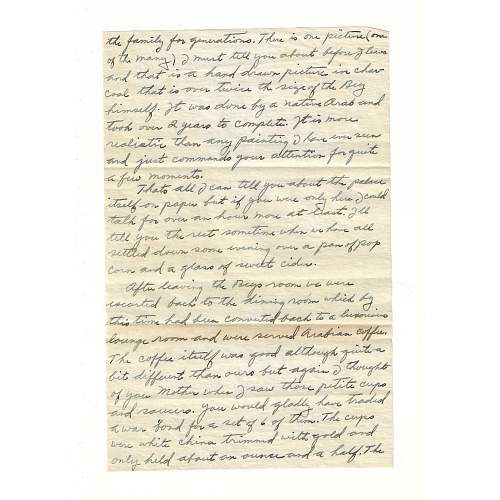 the family for generations. There is one picture (one
of the many) I must tell you about before I leave
and that is a hand drawn picture in char-
coal that is over twice the size of the Bey
himself. It was done by a native Arab and
took over 2 years to complete. It is more
realistic than any painting I have ever seen
and just commands your attention for quite
a few moments.
Thats all I can tell you about the palace
itself on paper but if you were only here I could
talk for over an hour more at least. I'll
tell you the rest sometime when we have all
settled down some evening over a pan of pop
corn and a glass of sweet cider.
After leaving the Beys room we were
escorted back to the dining room which by
this time had been converted back to a luxurious
lounge room and were served Arabian coffee.
The coffee itself was good although quite a
bit different than ours but again I thought
of you Mother when I saw those petite cups
and saucers. You would gladly have traded
a war bond for a set of 6 of them. The cups
were white china trimmed with gold and
only held about an ounce and a half. The